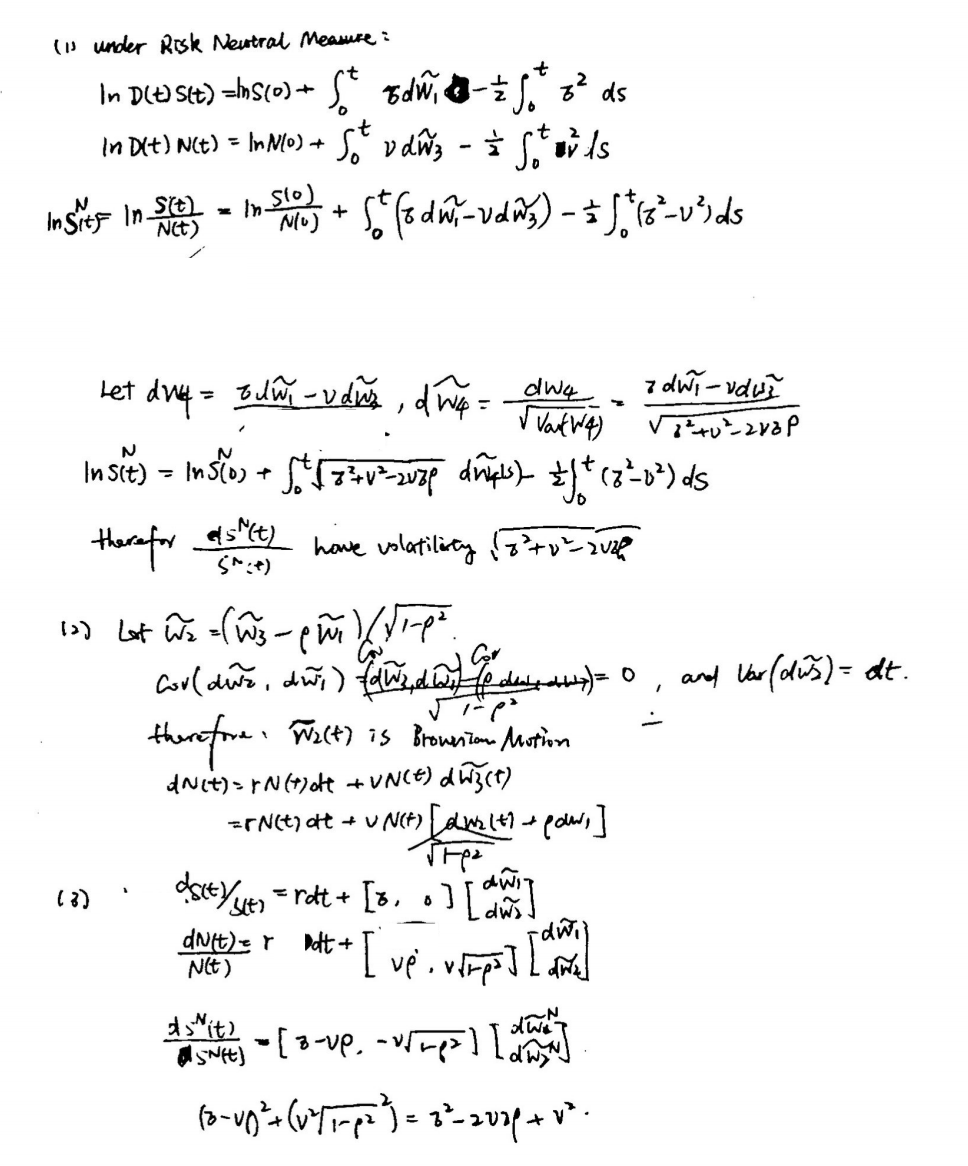 (1) under Risk Neutral Measure:
ln D(t)S(t) = lnS(0) + ∫₀ᵗ σdW̃₁ - ½∫₀ᵗ σ² ds
ln D(t) N(t) = lnN(0) + ∫₀ᵗ νdW̃₃ - ½∫₀ᵗ ν² ds
lnS^N(t) = ln S(t)/N(t) = ln S(0)/N(0) + ∫₀ᵗ (σdW̃₁ - νdW̃₃) - ½∫₀ᵗ (σ²-ν²) ds
Let dW₄ = σdW̃₁ - νdW̃₃, dW̃₄ = dW₄/√Var(W₄) = (σdW̃₁ - νdW̃₃)/√(σ²+ν²-2νσρ)
lnS^N(t) = lnS^N(0) + ∫₀ᵗ √(σ²+ν²-2νσρ) dW̃₄(s) - ½∫₀ᵗ (σ²-ν²) ds
therefor dS^N(t)/S^N(t) have volatility √(σ²+ν²-2νσρ)
(2) Let W̃₂ = (W̃₃ - ρW̃₁)/√(1-ρ²)
Cov(dW̃₂, dW̃₁) = 0, and Var(dW̃₂) = dt.
therefore. W̃₂(t) is Brownian Motion
dN(t) = rN(t)dt + νN(t) dW̃₃(t)
= rN(t) dt + νN(t) [dW₂(t) + ρdW₁]
√(1-ρ²)
(3) dS(t)/S(t) = rdt + [σ, 0] [dW̃₁ dW̃₂]
dN(t)/N(t) = r dt + [νρ, ν√(1-ρ²)] [dW̃₁ dW̃₂]
dS^N(t)/S^N(t) = [σ-νρ, -ν√(1-ρ²)] [dW̃^N dW̃₂^N]
(σ-νρ)² + (ν²√(1-ρ²)²) = σ²-2νσρ + ν².